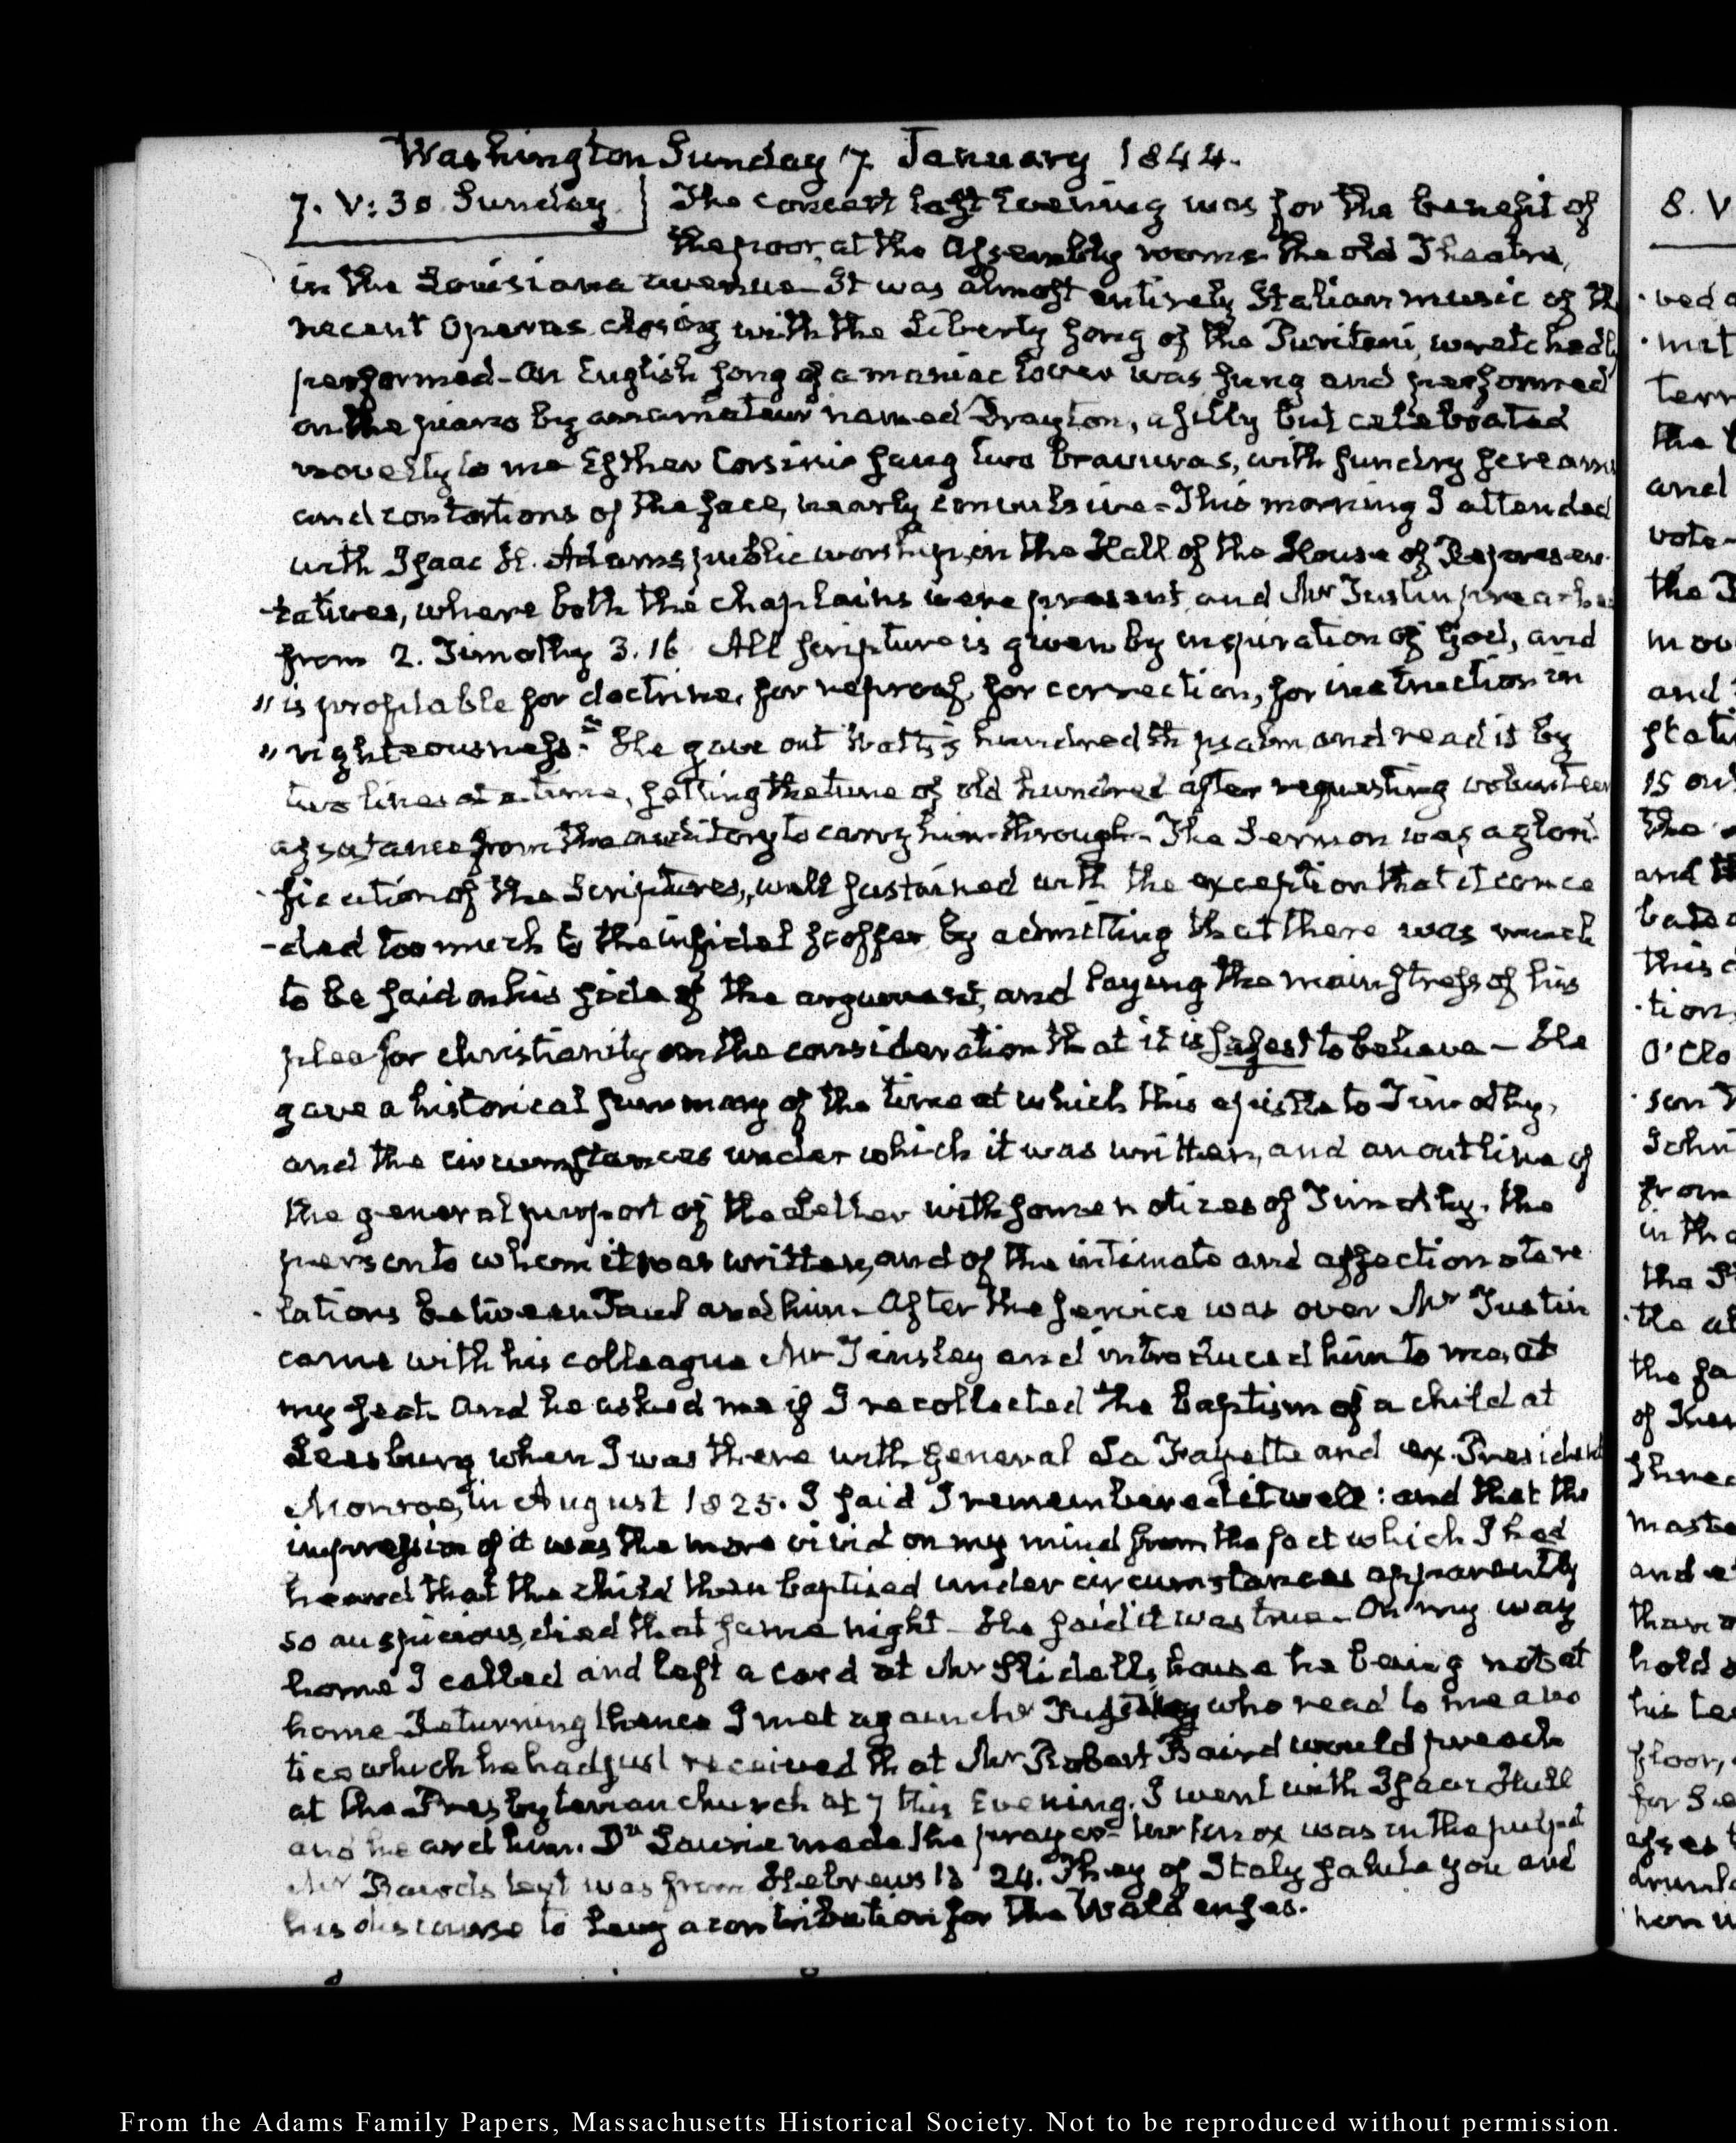 Washington Sunday 7 January 1844.
7. V:30 Sunday The concert last Evening was for the benefit of
the poor, at the Assembly rooms the old Theatre,
in the Louisiana avenue. It was almost entirely Italian music of the
recent Operas closing with the Liberty song of the Puritani, wretchedly
performed - An English song of a maniac lover was sung and performed
on the piano by an amateur named Drayton, a silly but celebrated
novelty to me Esther Corsini sang two bravuras, with sundry screams
and contortions of the face, nearly convulsive - This morning I attended
with Isaac H. Adams, public worship, in the Hall of the House of Represen-
-tatives, where both the chaplains were present, and Mr Tustin preached
from 2. Timothy 3.16 All scripture is given by inspiration of God, and
" is profitable for doctrine, for reproof, for correction, for instruction in
" righteousness." He gave out Watts's hundredth psalm and read it by
two lines at a time, setting the tune of old hundred after requesting volunteer
assistance from the auditory to carry him through - The Sermon was a glori-
fication of the Scriptures, well sustained with the exception that it conce
-ded too much to the infidel scoffer by admitting that there was much
to be said on his side of the argument, and laying the main stress of his
plea for christianity on the consideration that it is safest to believe - He
gave a historical summary of the time at which this epistle to Timothy,
and the circumstances under which it was written, and an outline of
the general purport of the Letter with some notices of Timothy, the
person to whom it was written, and of the intimate and affectionate re
lations between Paul and him - After the service was over Mr Tustin
came with his colleague Mr Tinsley and introduced him to me, at
my seat. And he asked me if I recollected the baptism of a child at
Leesburg when I was there with General La Fayette and ex. President
Monroe, in August 1825. I said I remembered it well: and that the
impression of it was the more vivid on my mind from the fact which I had
heard that the child then baptised under circumstances apparently
so auspicious, died that same night - He said it was true - On my way
home I called and left a card at Mr Slidell's house he being not at
home Returning thence I met again Mr who read to me a no
tice which he had just received that Mr Robert Baird would preach
at the Presbyterian church at 7 this Evening. I went with Isaac Hull
and heard him. Dr Laurie made the prayer - Mr Knox was in the pulpit
Mr Baird's text was from Hebrews 13 24. They of Italy salute you and
his discourse to levy a contribution for the Waldenses.
8. V
ved
mit
the
and
vote-
the
and
15
The
this
tion
O'Clo
the
in the
the
the
of
and
hold
floor,
From the Adams Family Papers, Massachusetts Historical Society. Not to be reproduced without permission.